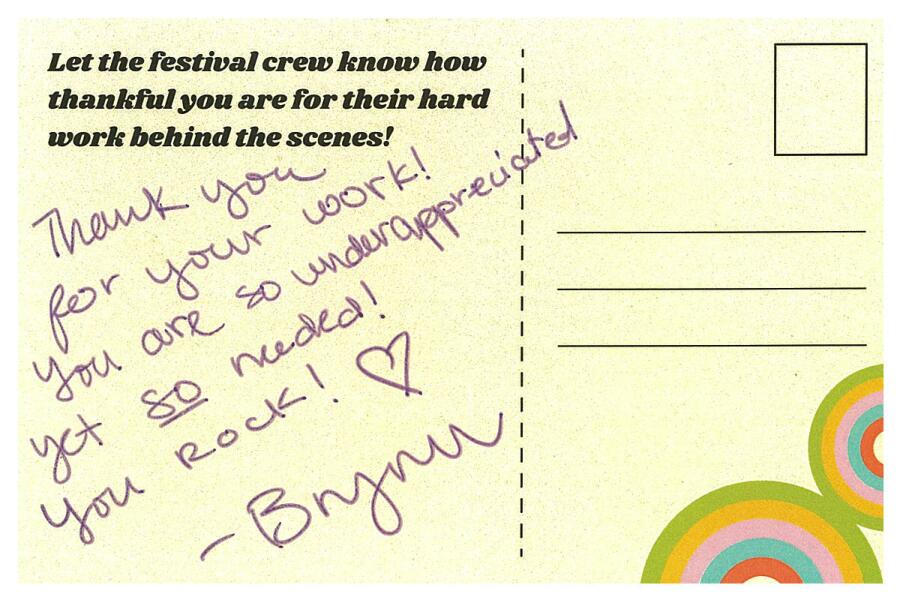 Let the festival crew know how
thankful you are for their hard
work behind the scenes!
Thank you
for your work!
you are so underappreciated
yet so needed!
you Rock! ♡
- Brynn